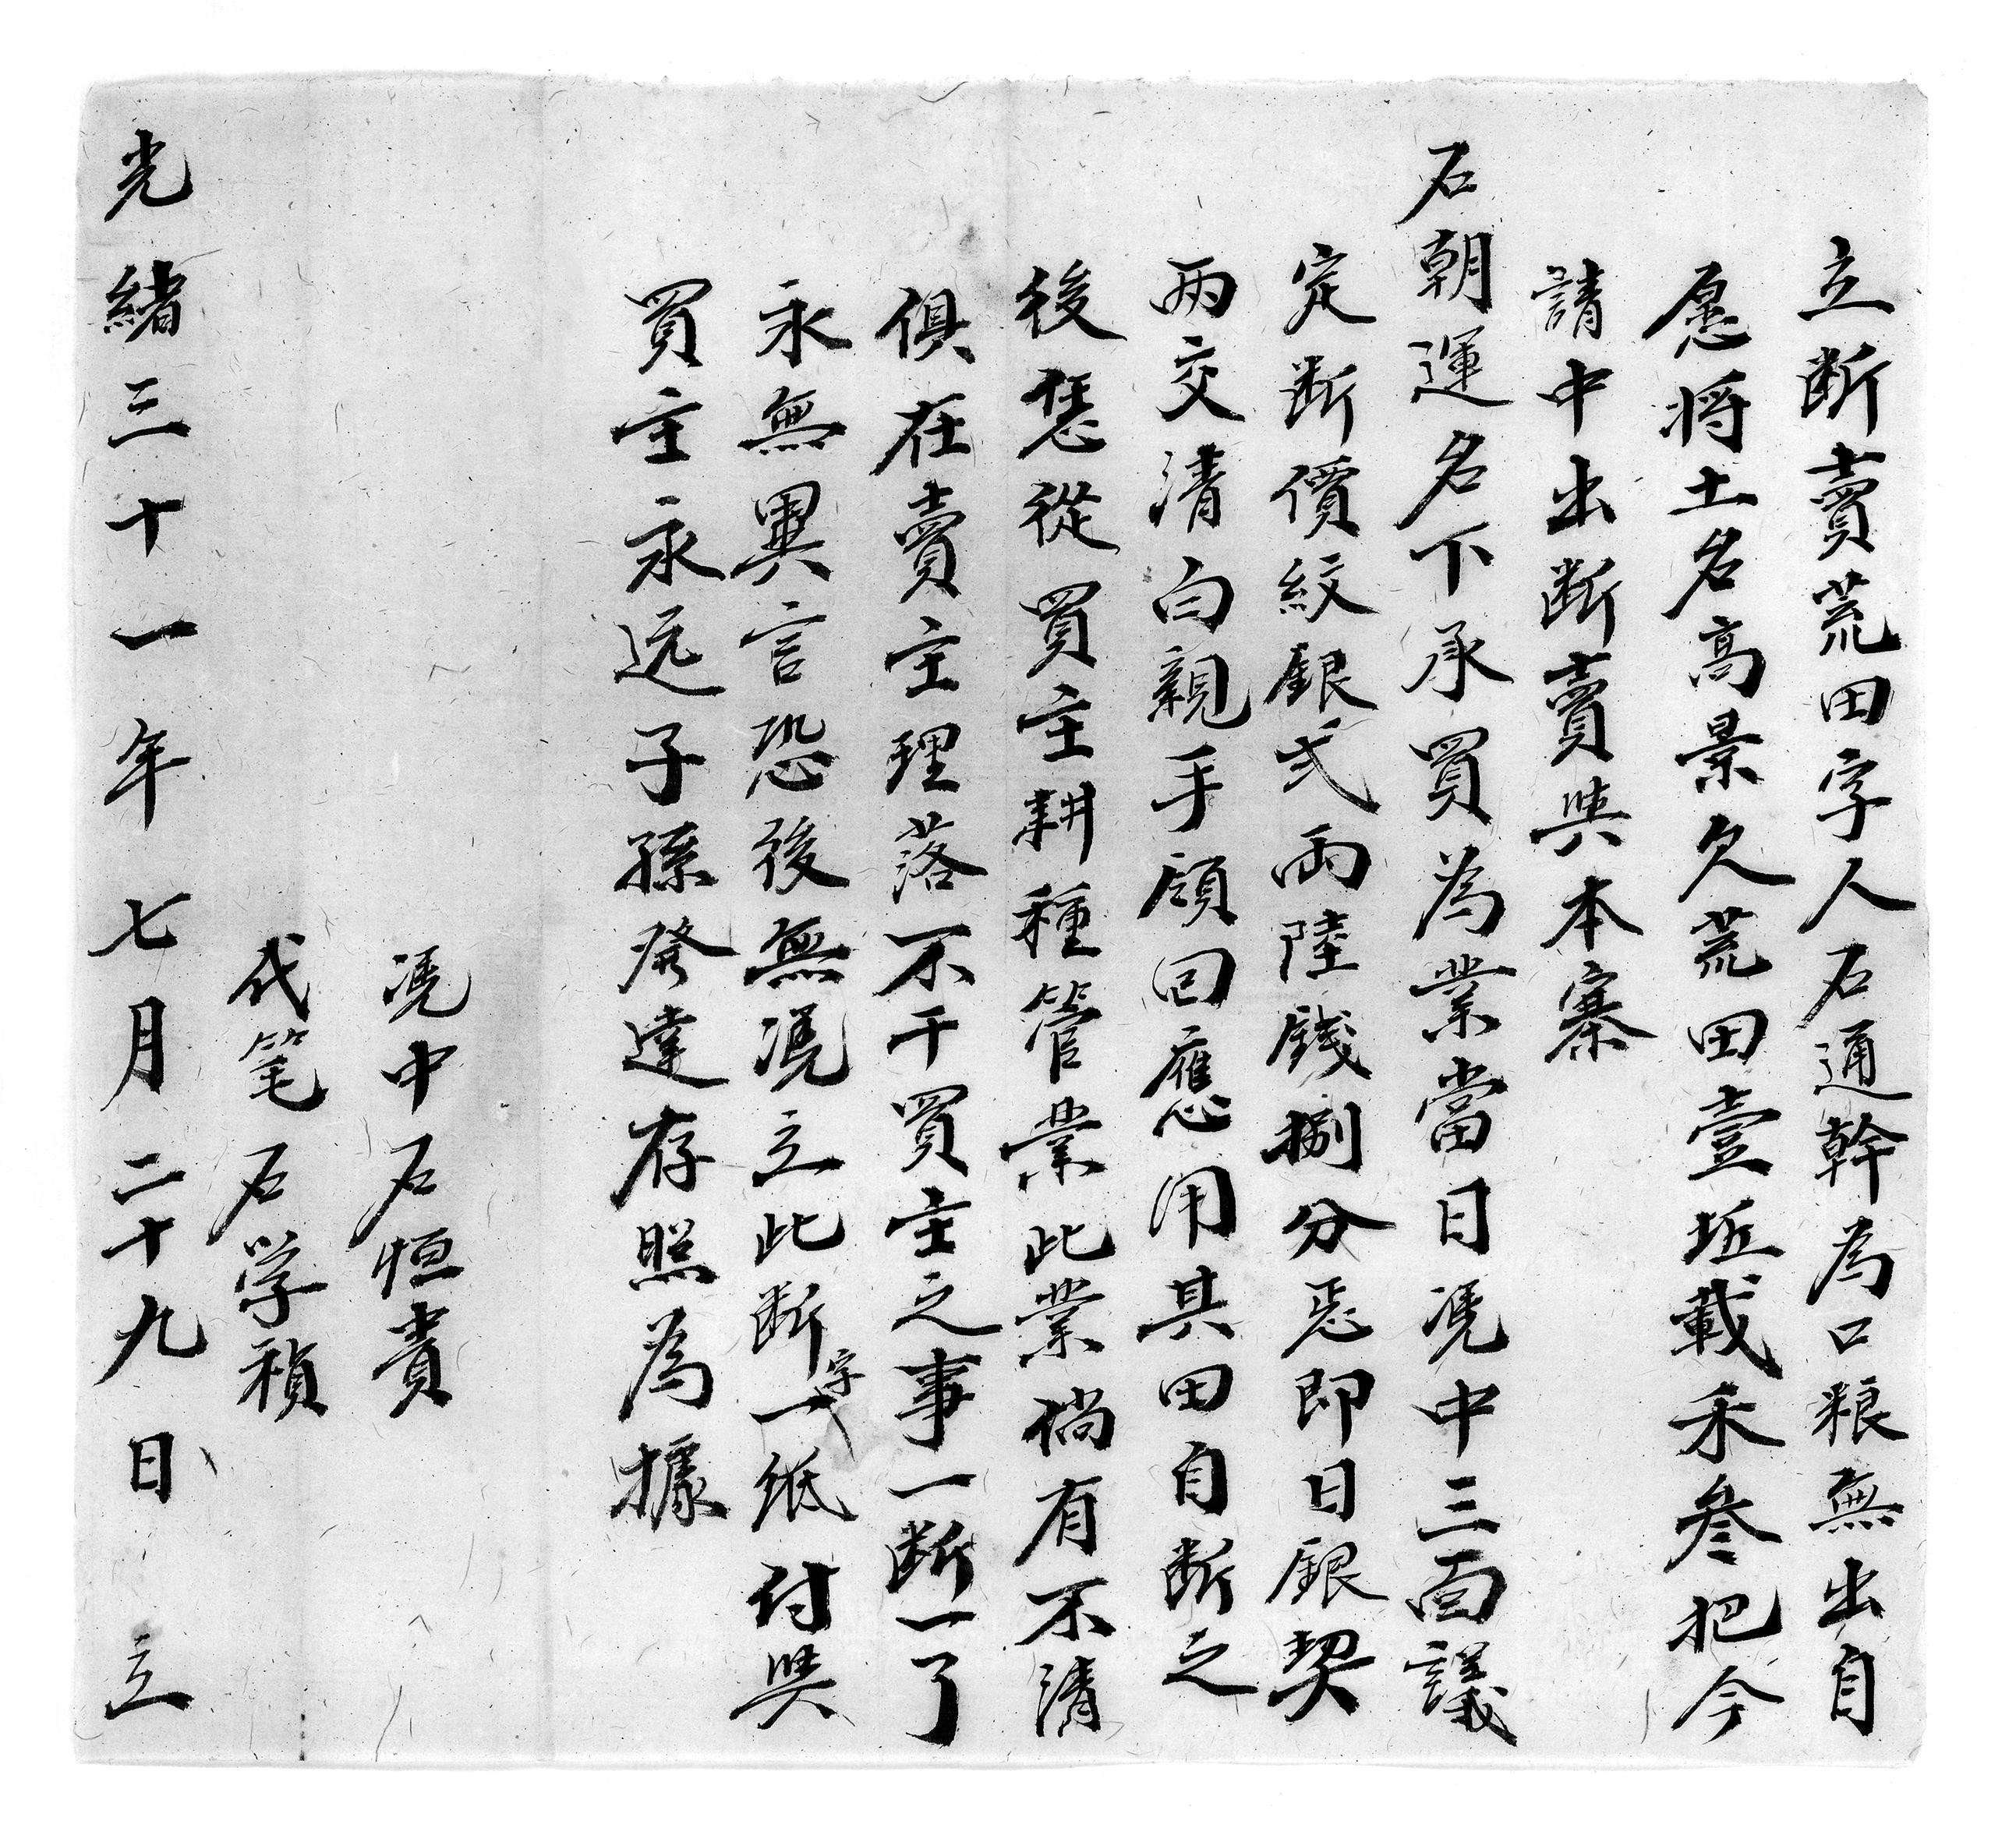 立断賣荒田字人石通幹為口粮無出自
愿将土名高景久荒田壹坵載禾叁把今
請中出断賣與本寨
石朝運名下承買為業當日憑中三面議
定断價紋銀弍兩陸錢捌分恶即日銀契
两交清白親手領回應用其田自断之
後恁從買主耕種管業此業倘有不清
俱在賣主理落不干買主之事一断一了
永無異言恐後無憑立此断字一紙付與
買主永远子孫発達存照為據
憑中石恒貴
代笔石学禎
光緒三十一年七月二十九日立